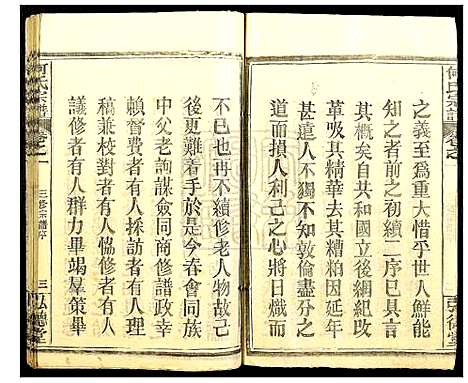 之義至爲重大惜乎世人鮮能
知之者前之初續二序已具言
其概矣自共和國立後綱紐改
革吸其精華去其糟粕因延年
甚遠人不獨不知敦倫盡分之
道而損人利己之心將日熾而
不已也再不續修老人物故己
後更難着手於是今春會同族
中父老詢謀僉同商修譜政幸
賴督費者有人採訪者有人理
稿兼校對者有人更兼代爲纂
議修者有人群力畢竭羣策畢
何氏宗譜
卷之一
三修宗譜序
三
弘德堂